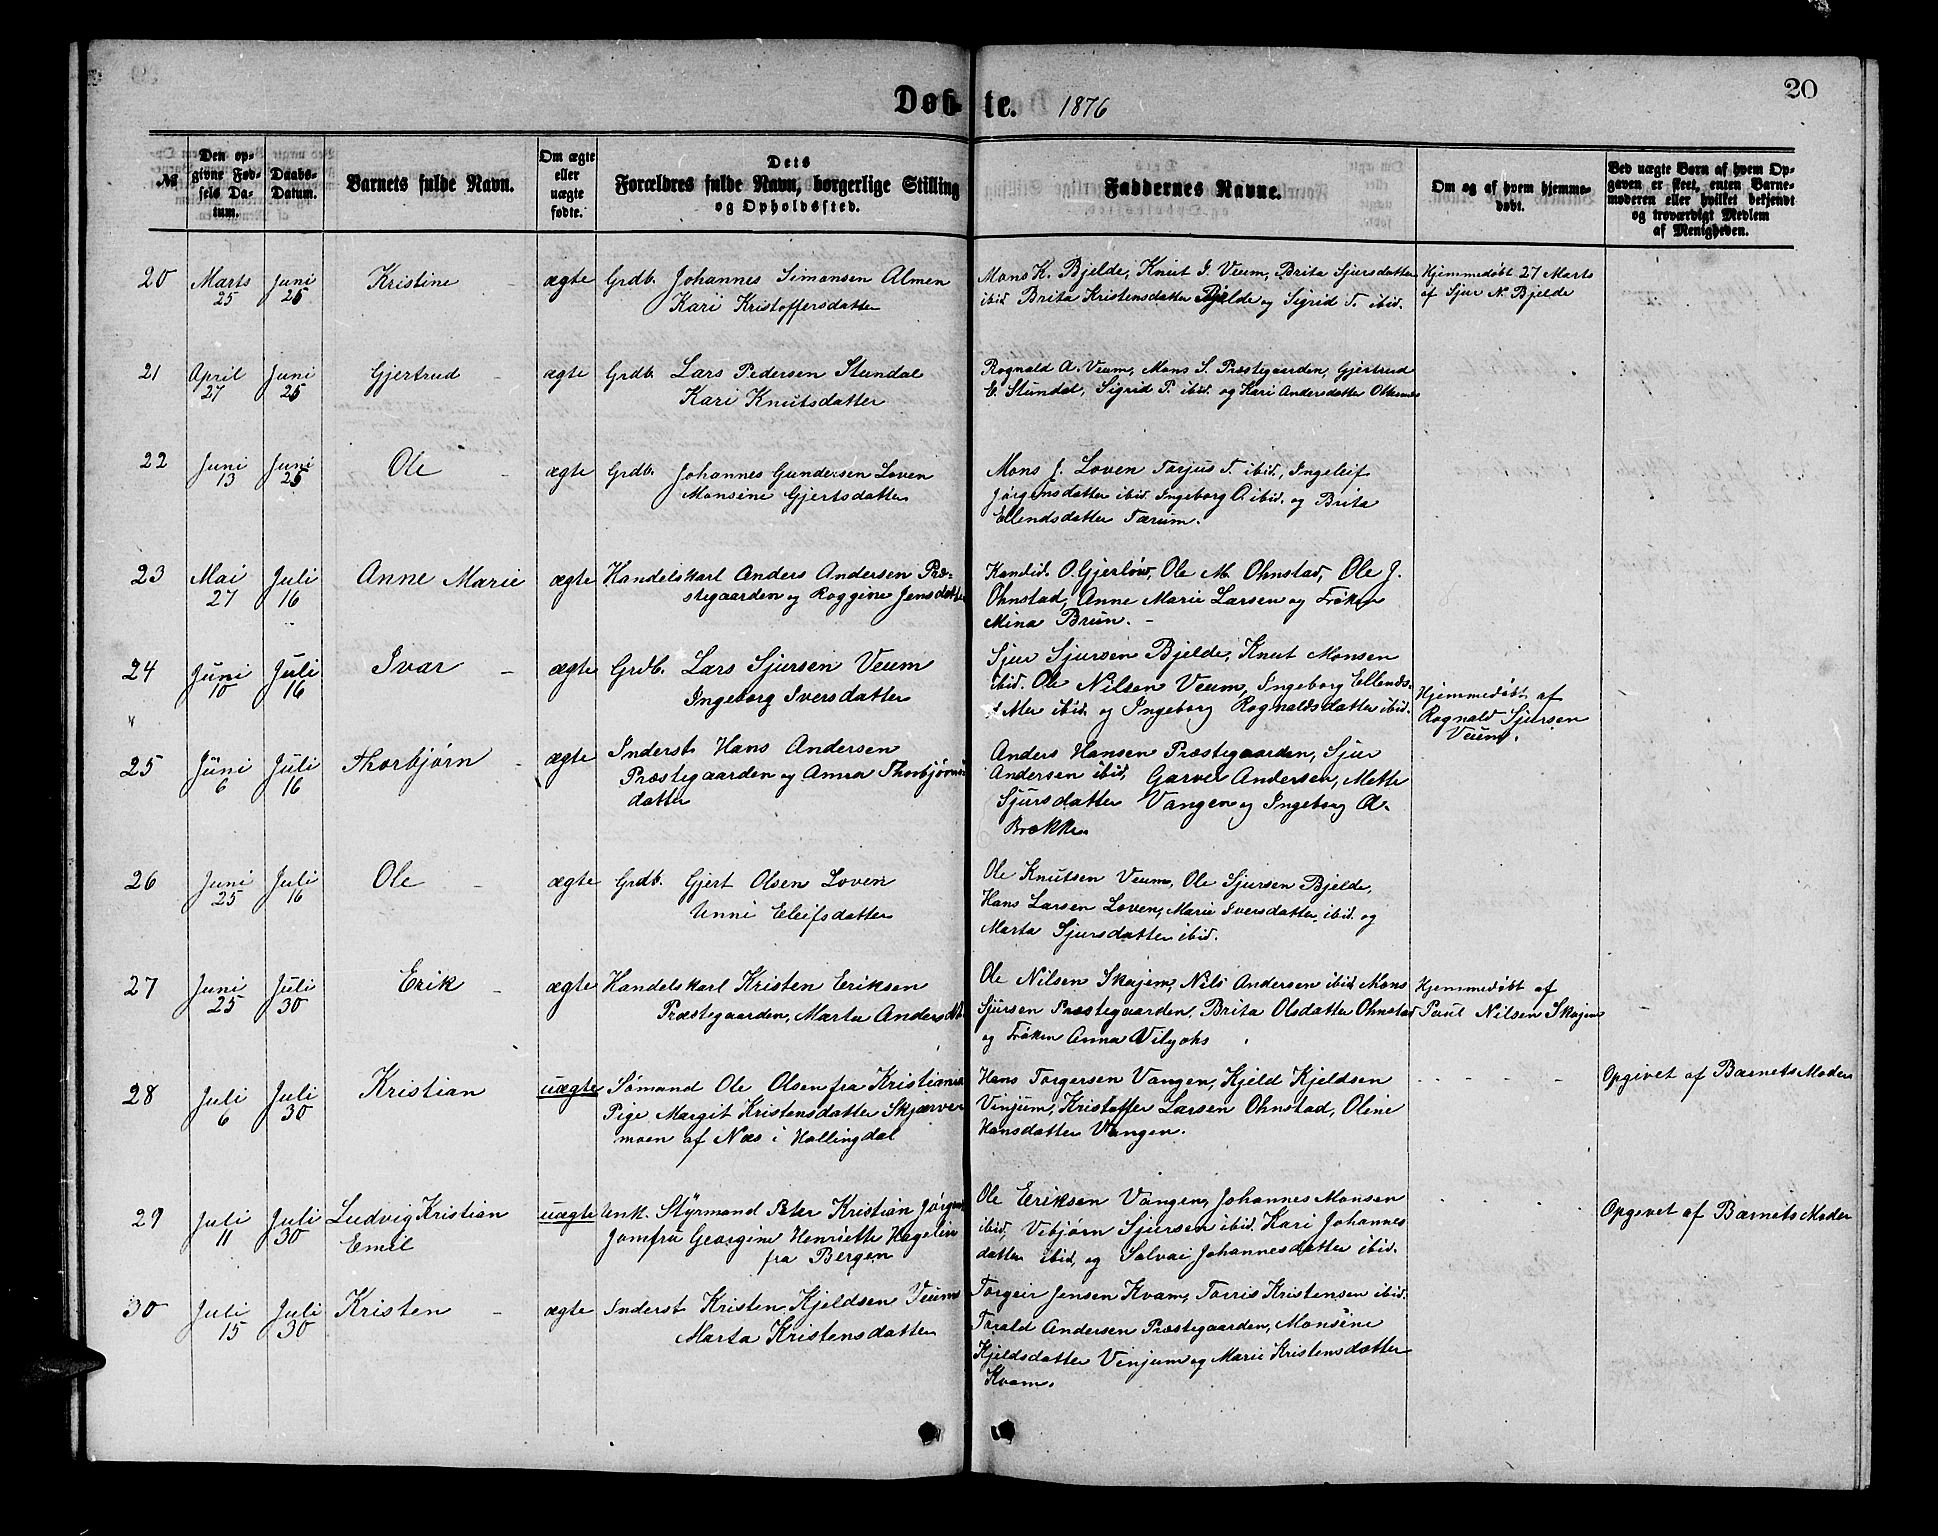 Døbte. 1876
20
№
Den opgivne Fødsels Datum.
Daabs-Datum.
Barnets fulde Navn.
Om ægte eller uægte fødte.
Dets Forældres fulde Navn, borgerlige Stilling og Opholdssted.
Faddernes Navne.
Om og af hvem hjemmedøbt.
Ved uægte Børn af hvem Opgaven er skeet, enten Barnemoderen eller hvilket bekjendt og troværdigt Medlem af Menigheden.
20 Marts 25 Juni 25 Kristine ægte Grdb. Johannes Simonsen Almen
Kari Kristoffersdatter
Mons K. Bjelde, Knut J. Veum, Brita Sjursdatter
ibid Brita Kristensdatter Bjelde og Sigrid T. ibid.
Hjemmedøbt 27 Marts
af Sjur N. Bjelde
21 April 27 Juni 25 Gjertrud ægte Grdb. Lars Pedersen Stundal
Kari Knutsdatter
Rognald A. Veum, Mons S. Præstegaarden, Gjertrud
E. Stundal, Sigrid P. ibid. og Kari Andersdatter
22 Juni 13 Juni 25 Ole ægte Grdb. Johannes Gundersen Loven
Monsine Gjertsdatter
Mons J. Loven Torjus T. ibid., Ingeleif
Jørgensdatter ibid. Ingeborg O. ibid. og Brita
Ellendsdatter Tærum.
23 Mai 27 Juli 16 Anne Marie ægte Handelskarl Anders Andersen Præ-
stegaarden og Roggine Jensdatter
Kandid. O. Gjerløw, Ole M. Ohnstad, Ole J.
Ohnstad, Anne Marie Larsen og Frøken
Mina Brun. -
24 Juni 10 Juli 16 Ivar ægte Grdb. Lars Sjursen Veum
Ingeborg Iversdatter
Sjur Sjursen Bjelde, Knut Monsen
ibid. Ole Nilsen Veum, Ingeborg Ellends-
datter ibid. og Ingeborg Rognaldsdatter ibid.
Hjemmedøbt af
Rognald Sjursen
Veum.
25 Juni 6 Juli 16 Thorbjørn ægte Inderst Hans Andersen
Præstegaarden og Anna Thorbjørns
datter
Anders Hansen Præstegaarden, Sjur
Andersen ibid, Garver Andersen, Mette
Sjursdatter Vangen og Ingeborg O.
Brække
26 Juni 25 Juli 16 Ole ægte Grdb. Gjert Olsen Loven
Unni Eleifsdatter
Ole Knutsen Veum, Ole Sjursen Bjelde,
Hans Larsen Loven, Marie Iversdatter ibid. og
Marta Sjursdatter ibid.
27 Juni 25 Juli 30 Erik ægte Handelskarl Kristen Eriksen
Præstegaarden, Marta Andersdtr
Ole Nilsen Skajem, Nils Andersen ibid, Mons
Sjursen Præstegaarden, Brita Olsdatter Ohnstad
og Frøken Anna
Hjemmedøbt af
Paul Nilsen Skajem
28 Juli 6 Juli 30 Kristian uægte Sømand Ole Olsen fra Kristiania
Pige Margit Kristensdatter Skjærver
moen af Næs i Hallingdal
Hans Torgersen Vangen, Kjeld Kjeldsen
Vinjum, Kristoffer Larsen Ohnstad, Oline
Hansdatter Vangen.
Opgivet af Barnets Moder
29 Juli 11 Juli 30 Ludvig Kristian
Emil
uægte Enk. Styrmand Peter Kristian Jørgens
Jomfru Georgine Henriette Hagelin
fra Bergen
Ole Eriksen Vangen, Johannes Monsen
ibid, Vibjørn Sjursen ibid. Kari Johannes
datter ibid, og Solvai Johannesdatter ibid.
Opgivet af Barnets Moder
30 Juli 15 Juli 30 Kristen ægte Inderst Kristen Kjeldsen Veum
Marta Kristensdatter
Torgeir Jensen Kvam, Torris Kristensen ibid.
Torald Andersen Præstegaarden, Monsine
Kjeldsdatter Vinjum og Marie Kristensdatter
Kvam.